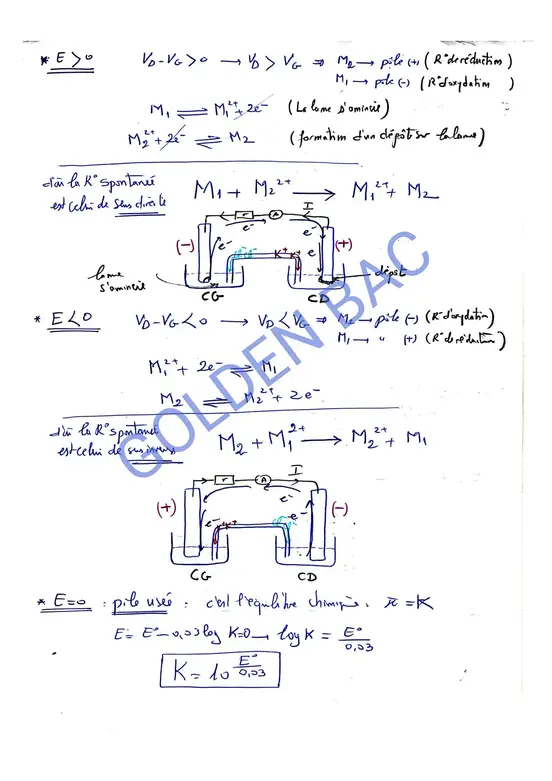 * E>0 V_D - V_G > 0 → V_D > V_G ⇒ M₂ → pôle (+) (R° de réduction)
M₁ → pôle (-) (R° d'oxydation)
M₁ ⇌ M₁²⁺ + 2e⁻ (La lame s'amincie)
M₂²⁺ + 2e⁻ ⇌ M₂ (formation d'un dépôt sur la lame)
d'où la R° spontanée
est celui de sens directe
M₁ + M₂²⁺ → M₁²⁺ + M₂
r A I
e⁻ e⁻
(-) e⁻ e (+)
K⁺ K⁺
lame
s'amincie
dépôt
CG CD
* E<0 V_D - V_G < 0 → V_D < V_G ⇒ M₂ → pôle (-) (R° d'oxydation)
M₁ → " (+) (R° de réduction)
M₁²⁺ + 2e⁻ ⇌ M₁
M₂ ⇌ M₂²⁺ + 2e⁻
d'où la R° spontanée
est celui de sens inverse
M₂ + M₁²⁺ → M₂²⁺ + M₁
r A I
e e⁻
(+) e⁻ e⁻ (-)
CG CD
* E=0 : pile usée : c'est l'équilibre chimique. π = K
E = E° - 0,03 log K = 0 → log K = E°/0,03
K = 10^(E°/0,03)
GOLDEN BAC